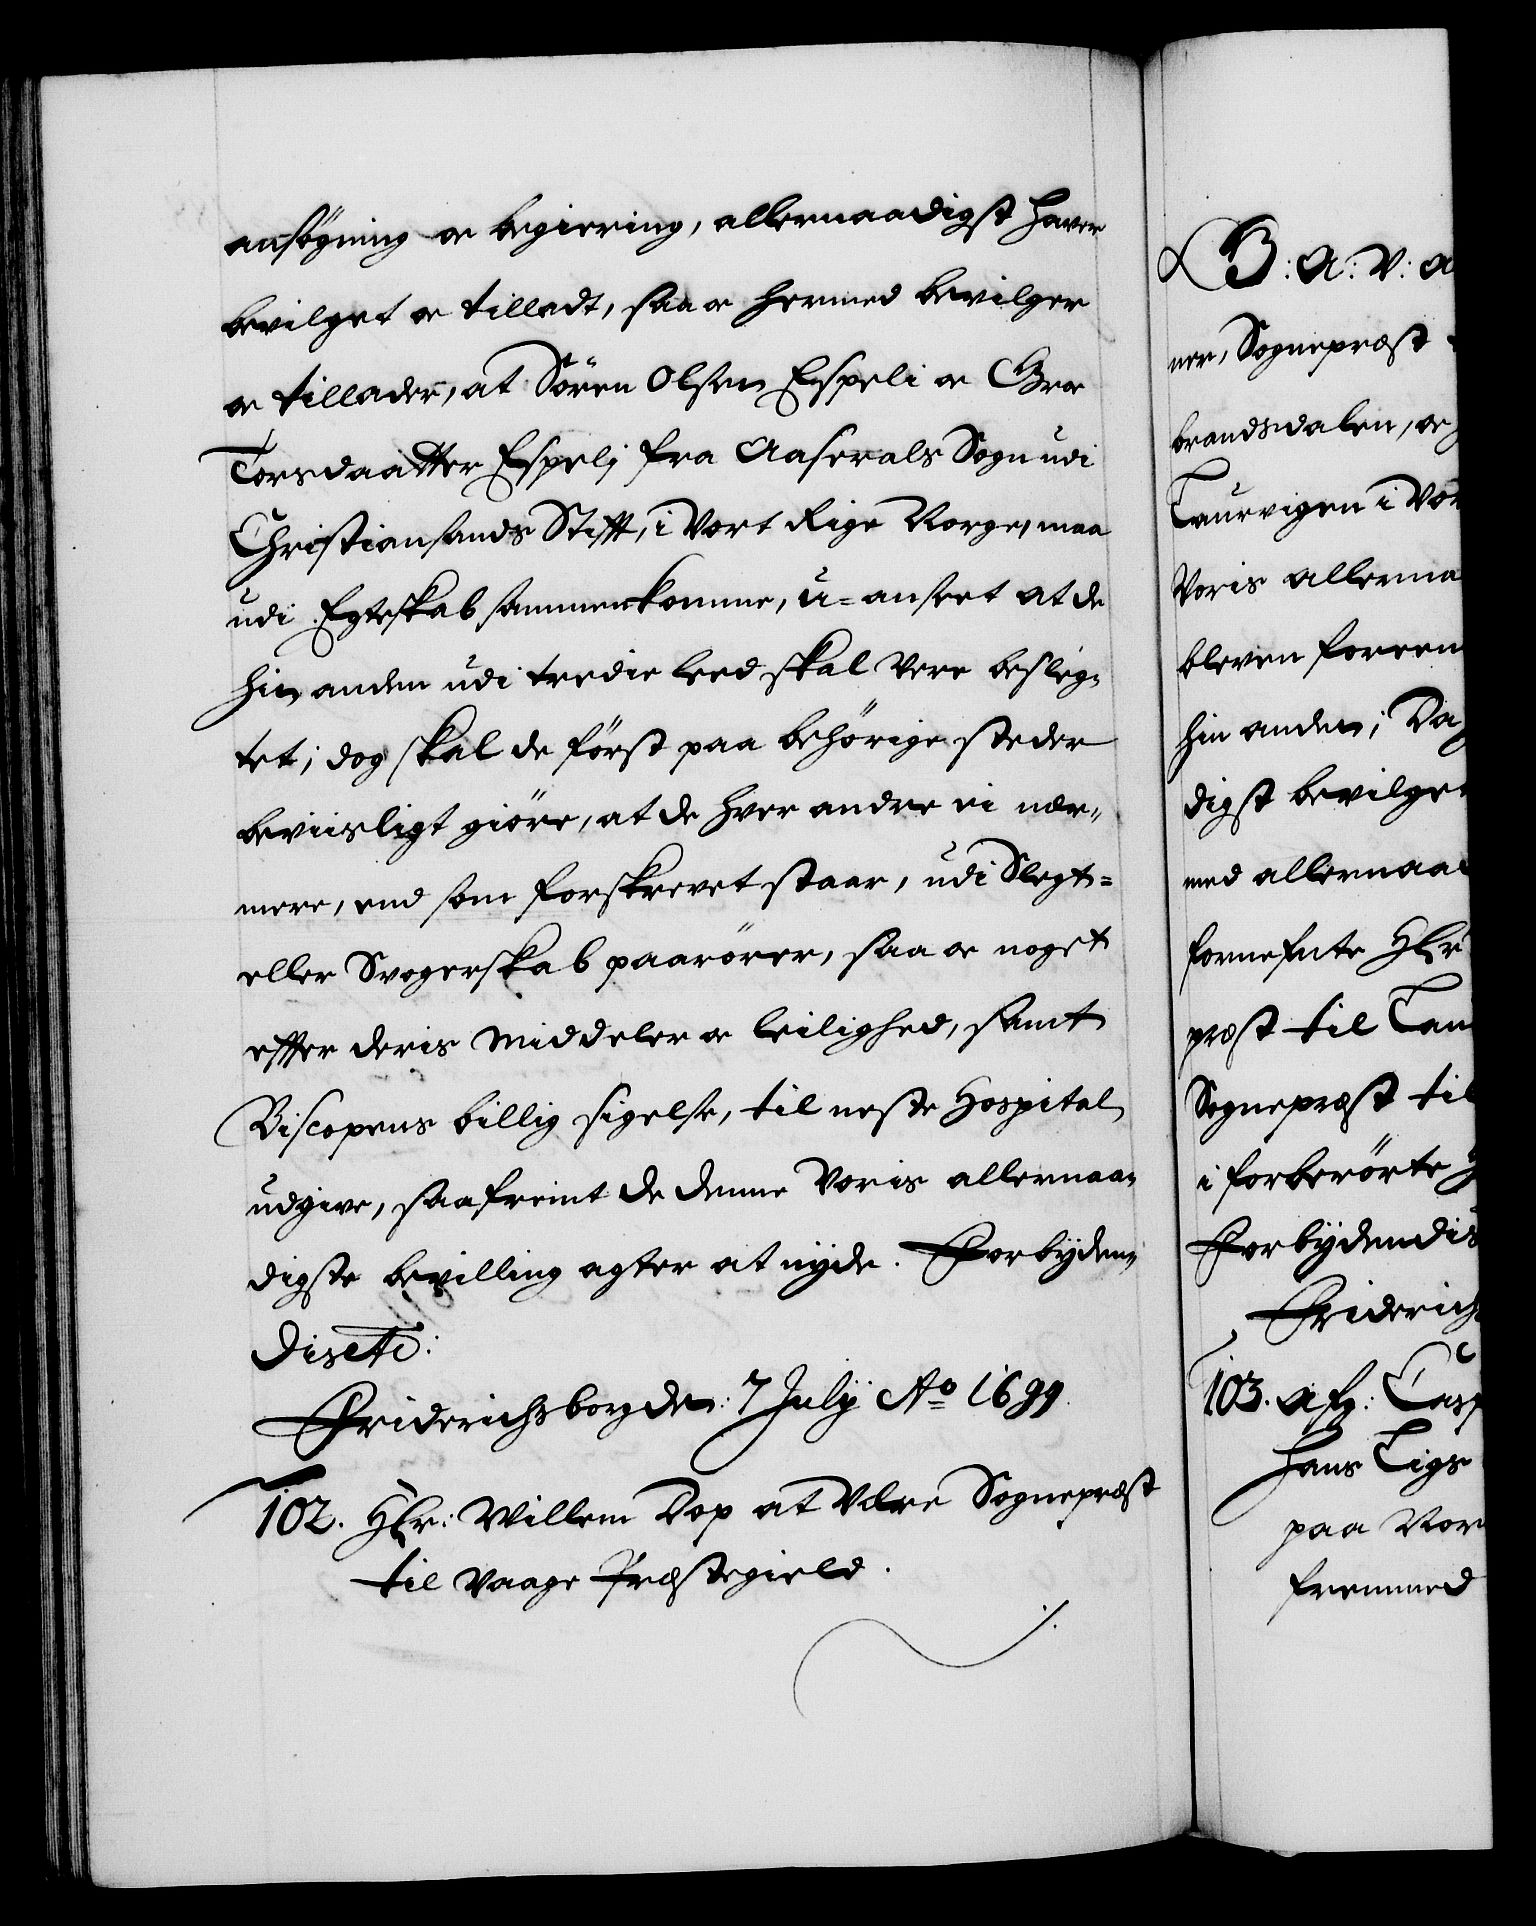 ansøgning oc begiering, allernaadigst haver
bevilget oc tilladt, saa oc hermed bevilger
oc tillader, at Sören Olsen Espeli oc Groe
Torsdaatter Espelj fra Aaserals Sogn udi
Christiansands Stifft, i Vort Rige Norge, maa
udi Egteskab sammenkomme, u-anseet at de
hin anden udi tredie leed skal vere besleg-
tet; dog skal de först paa behörige steder
beviisligt giöre, at de hver andre ei nær-
mere, end som forskrevet staar, udi Slegt-
eller Svogerskab paarörer, saa oc noget
effter deris middeler oc leilighed, samt
Biscopens billig sigelse, til neste Hospital
udgive, saafremt de denne Voris allernaa-
digste bevilling agter at nyde. Forbyden-
dis etc:
Friderichsborg den: 7 Julÿ Aº 1699.
102. Hr: Willem Dop at Være Sognepræst
til Vaage Præstegield.
B: A: V: A
ner, Sognepræst
brandsdalen, oc
Laurvigen i Vor
Voris allerna
bleven foreen
hin anden; Da
digst bevilget
med allernaa
fornefnte Hr
præst til Lau
Sognepræst til
i forberörte H
Forbydendis
Friderichs
103. Afg: Casp
Hans Tigs
paa Nor
fremmed